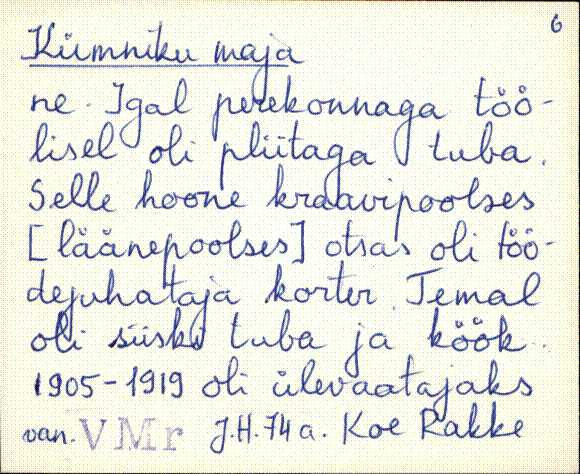 6
Kümniku maja
ne. Igal perekonnaga töö-
lisel oli pliitaga tuba.
Selle hoone kraavipoolses
[läänepoolses] otsas oli töö-
dejuhataja korter. Temal
oli siiski tuba ja köök.
1905-1919 oli ülevaatajaks
van. VMr J.H. 74 a. Koe Rakke